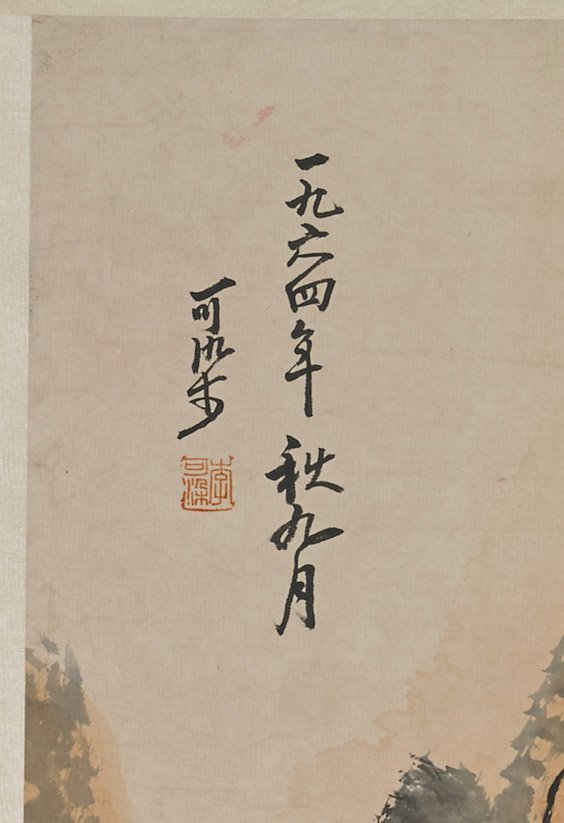 一九六四年 秋九月
可染
李可染